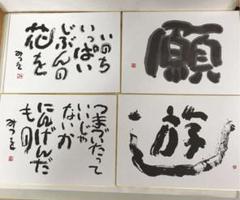 いのち
いっぱい
じぶんの
花を
みつを
願
つまづいたって
いいじゃ
ないか
にんげんだ
もの
みつを
遊